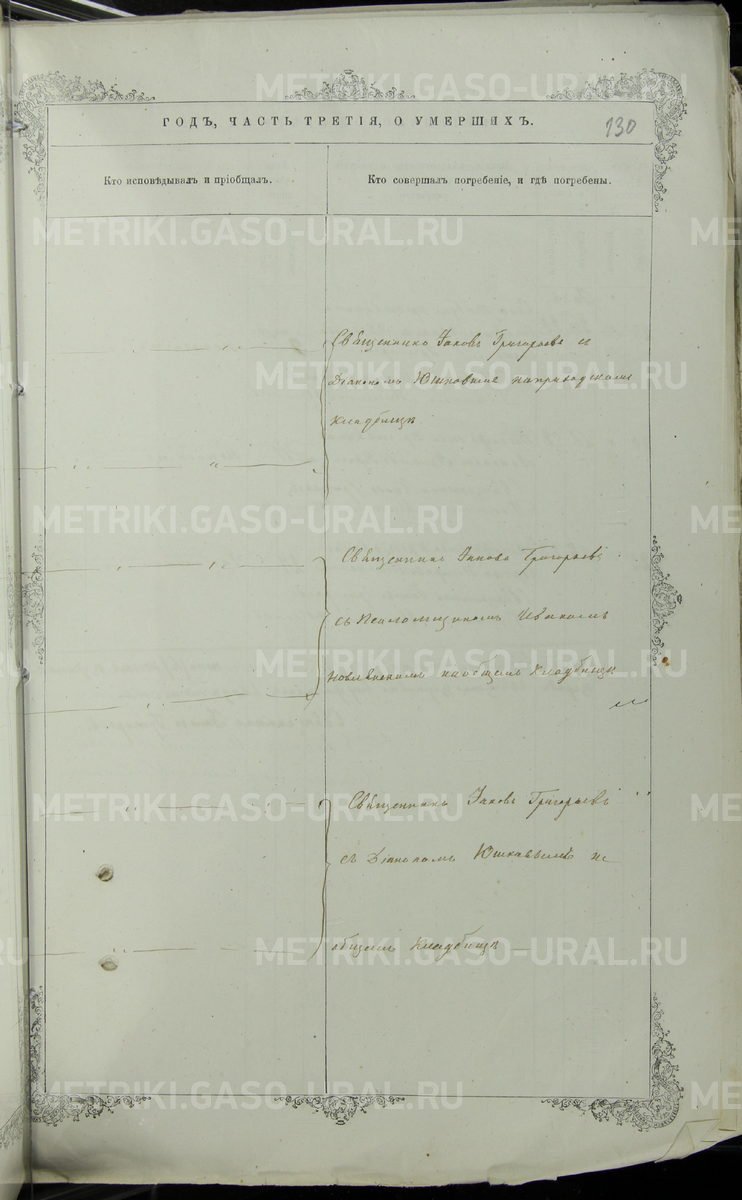 ГОДЪ, ЧАСТЬ ТРЕТІЯ, О УМЕРШИХЪ.
130
Кто исповѣдывалъ и пріобщалъ.
Кто совершалъ погребеніе, и гдѣ погребены.
Священникъ Іаковъ Григорьевъ съ
Діакономъ Юшковымъ на приходскомъ
кладбищѣ
Священникъ Іаковъ Григорьевъ
съ Псаломщикомъ Иваномъ
на общемъ кладбищѣ
Священникъ Іаковъ Григорьевъ
съ Діакономъ Юшковымъ на
общемъ кладбищѣ
METRIKI.GASO-URAL.RU